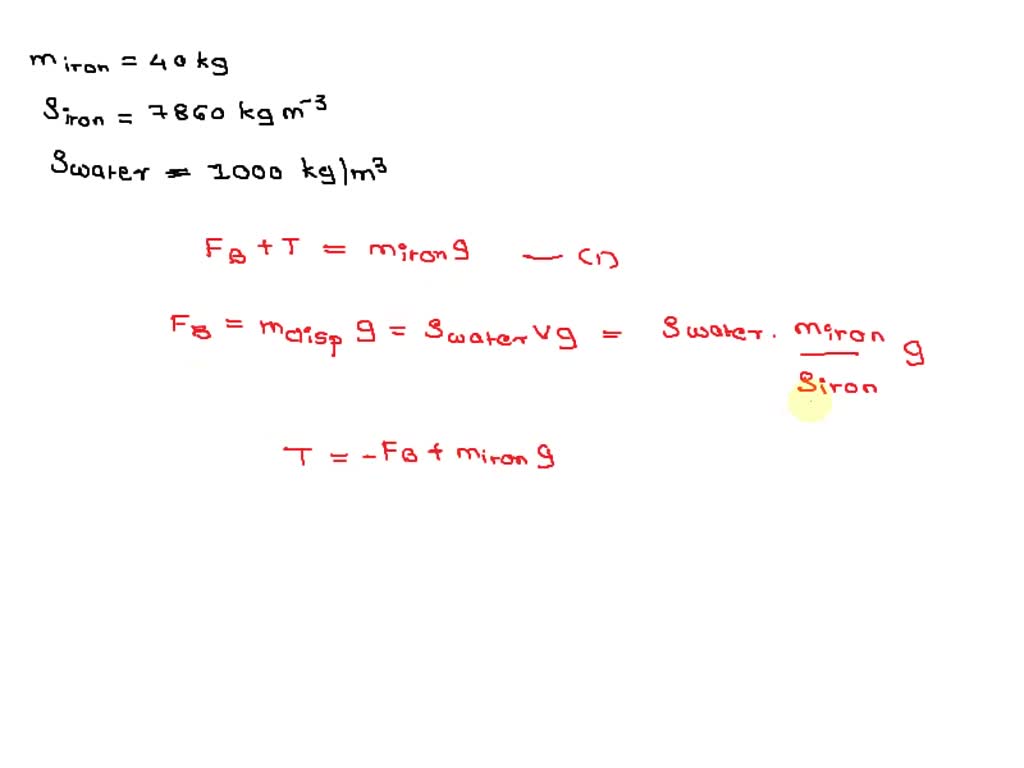 m iron = 40 kg
S iron = 7860 kg m⁻³
S water = 1000 kg/m³
F_B + T = m iron g — (1)
F_B = m disp g = S water V g = S water . m iron / S iron g
T = -F_B + m iron g